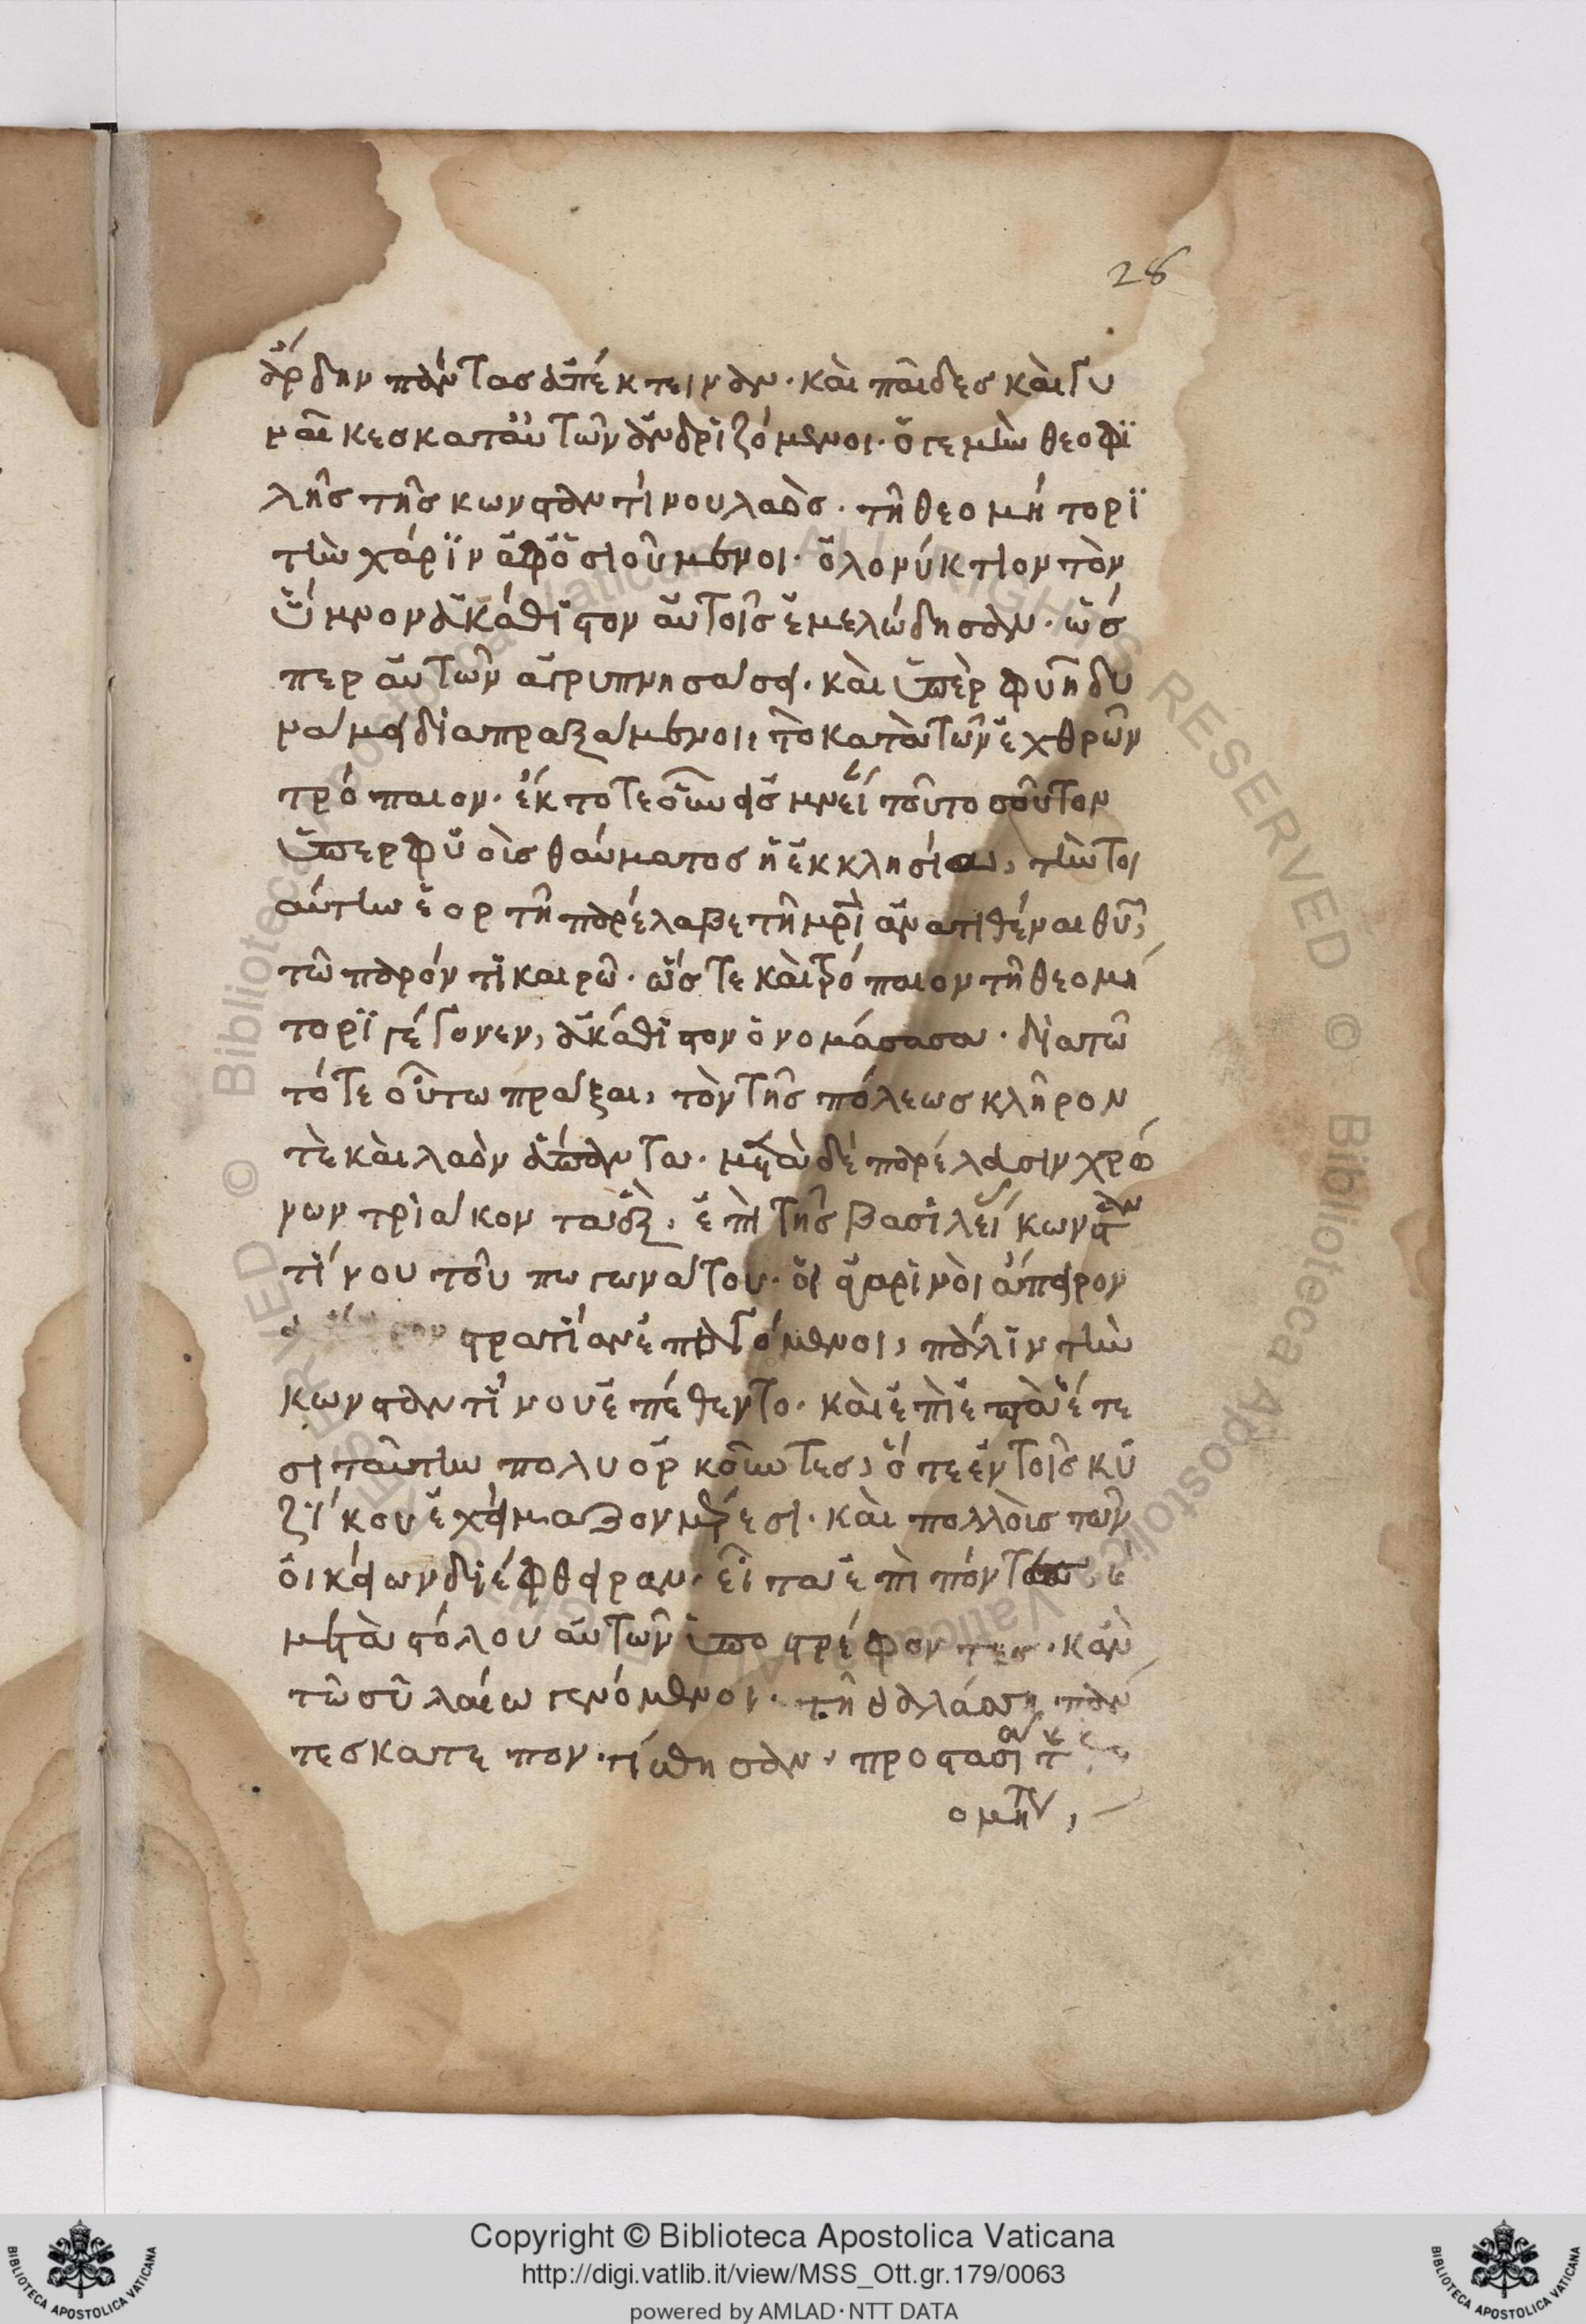 28
ἄρδην πάντας ἀπέκτειναν· καὶ παῖδες καὶ γυ
ναῖκες κατ' αὐτῶν ἀνδριζόμενοι· ὅ γε μὴν θεοφι
λὴς τῆς κωνσταντίνου λαὸς· τῆ θεομήτορι
τὴν χάριν ἀφοσιούμενοι· ὁλονύκτιον τὸν
ὕμνον ἀκάθιστον αὐτοῖς ἐμελώδησαν· ὡσ
περ αὐτῶν ἀγρυπνησάσει· καὶ ὑπὲρ φυῆ δυ
νάμει διαπραξάμενοι, τὸ κατὰ τῶν ἐχθρῶν
τρόπαιον· ἔκτοτε οὖν εἰς μνεί τοῦ τοσοῦτον
ὑπερφυοῖς θαύματος ἡ ἐκκλησία, τὴν τοι
αύτην ἑορτὴ παρέλαβε τῆ μρὶ ἀνατιθέναι θυ,
τῶ παρόντι καιρῶ· ὥστε καὶ τρόπαιον τῆ θεομή
τορι γέγονεν, ἀκάθιστον ὀνομάσασα· διὰ τῶ
τότε οὕτω πράξαι, τὸν τῆς πόλεως κλῆρον
τὲ καὶ λαὸν ἅπαντα· μετὰ δὲ παρέλασιν χρό
νων τριάκοντα ἓξ, ἐπὶ τῆς βασιλεί κωνσταν
τίνου τοῦ πωγωνάτου· οἱ ἀγαρινοὶ ἄπειρον
στρατίαν ἐπαγόμενοι, πάλιν τὴν
κωνσταντίνου ἐπέθεντο· καὶ ἐπὶ ἑπτὰ ἔτε
σι ταύτην πολυορκοῦντες, ὅτε ἐν τοῖς κυ
ζίκου ἐχείμαζον μέρεσι· καὶ πολλοῖς τῶν
οἰκείων διέφθειραν· εἶτα ἐπὶ
μετὰ στόλου αὐτῶν ὑποστρέφοντες· κἀν
τῶ συλαίω γενόμενοι· τῆ θαλάσση πάν
τες κατεποντίσθησαν· προστασί τ
ομητ,